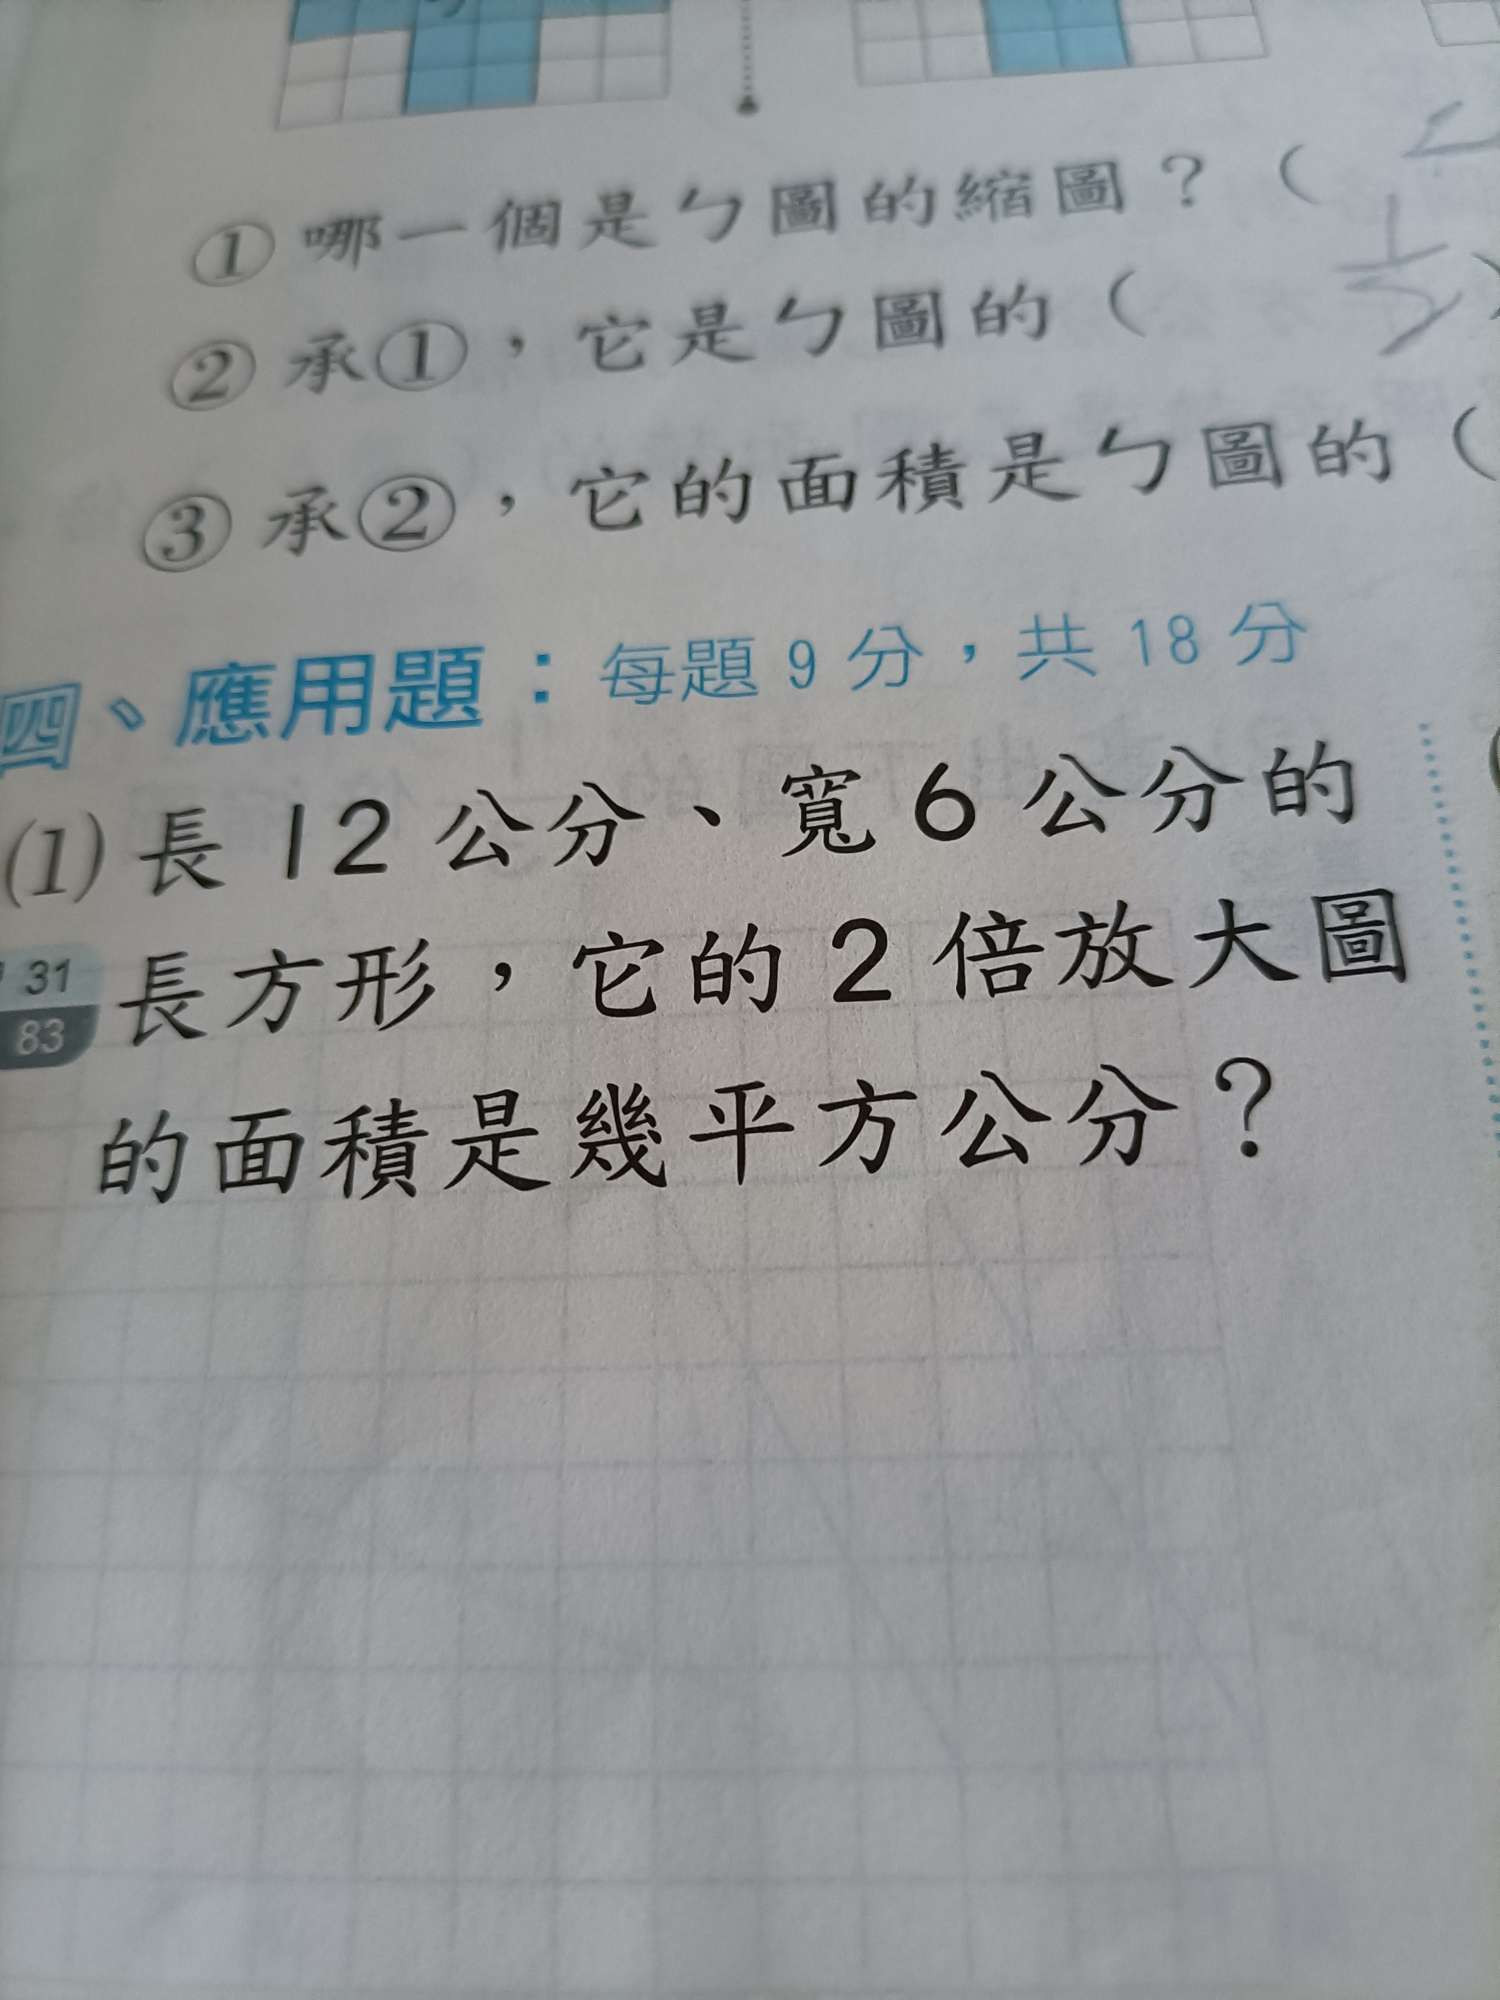 ① 哪一個是ㄅ圖的縮圖？（
② 承①，它是ㄅ圖的（ 1/2 ）
③ 承②，它的面積是ㄅ圖的（
四、應用題：每題 9 分，共 18 分
(1) 長 12 公分、寬 6 公分的
長方形，它的 2 倍放大圖
31
83
的面積是幾平方公分？